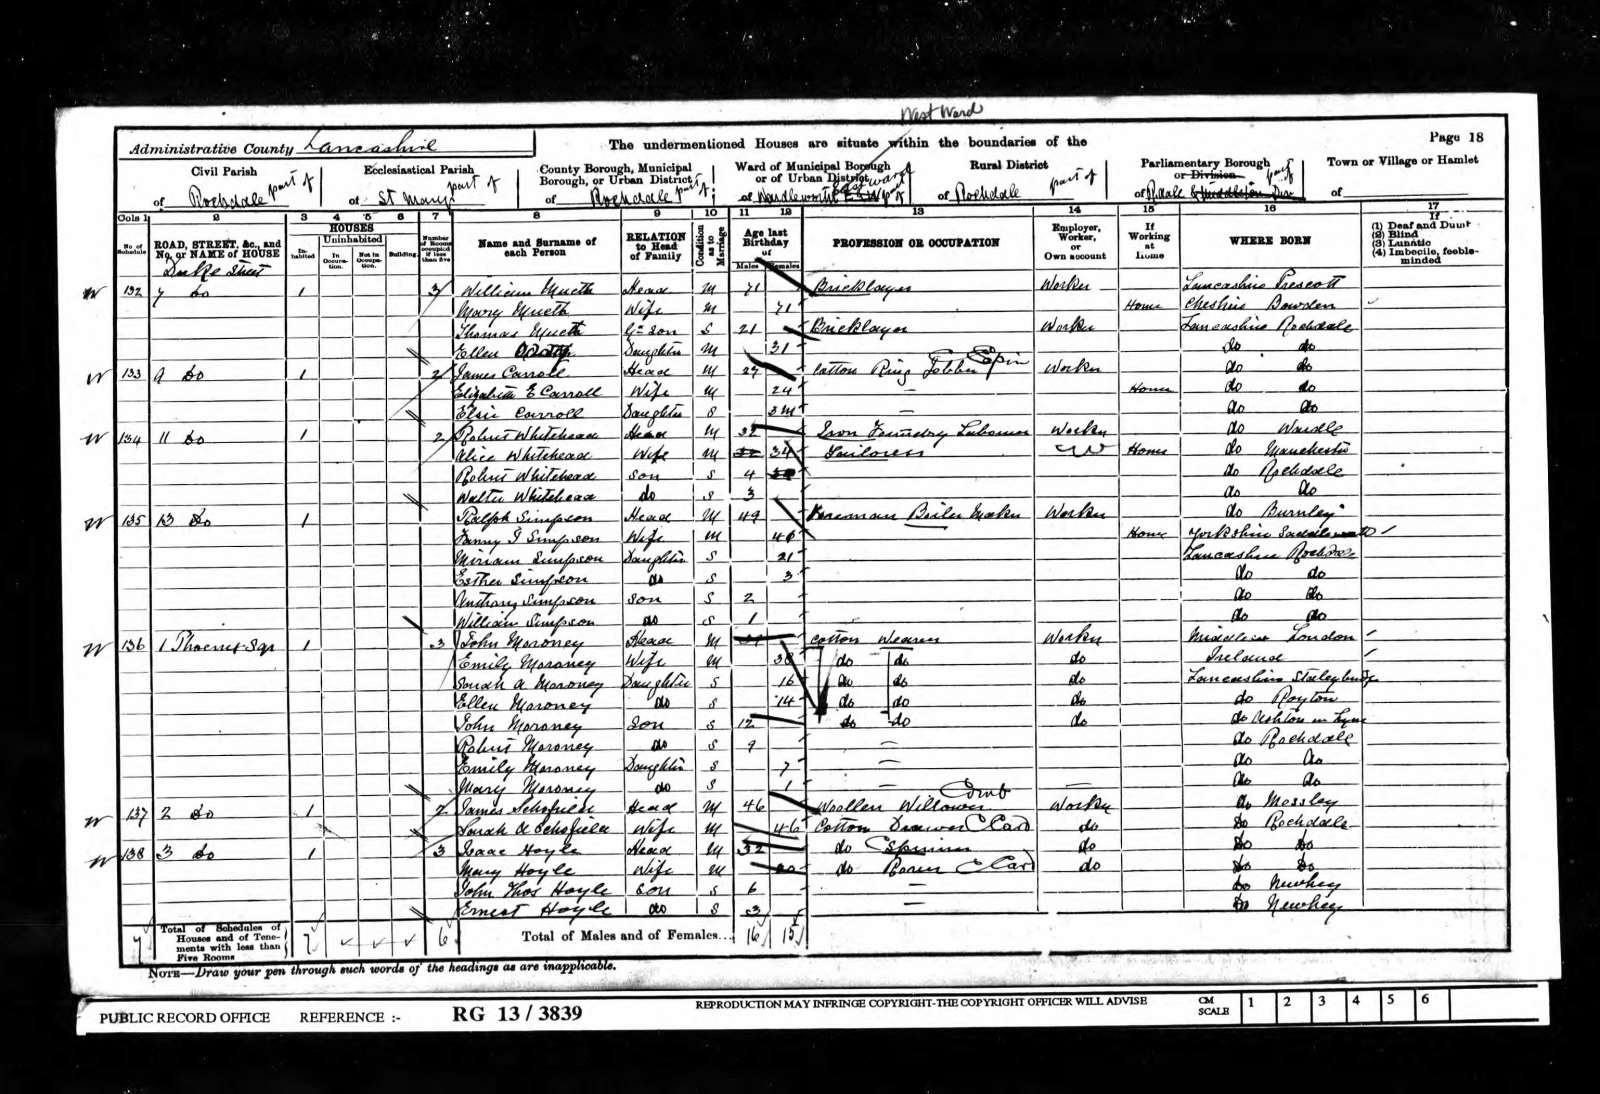 West Ward
Administrative County Lancashire
The undermentioned Houses are situate within the boundaries of the
Page 18
Civil Parish
Ecclesiastical Parish
County Borough, Municipal Borough, or Urban District
Ward of Municipal Borough or of Urban District
Rural District
Parliamentary Borough or Division
Town or Village or Hamlet
of Rochdale part of
of St Marys part of
of Rochdale part of
of Wardleworth East Ward part of
of Rochdale part of
of R'dale & Middleton Div part of
of
Cols 1 2 3 4 5 6 7 8 9 10 11 12 13 14 15 16 17
No. of Schedule
ROAD, STREET, &c., and No. or NAME of HOUSE
HOUSES
Inhabited
Uninhabited
In Occupation.
Not in Occupation.
Building.
Number of Rooms occupied if less than five
Name and Surname of each Person
RELATION to Head of Family
Condition as to Marriage
Age last Birthday of
Males
Females
PROFESSION OR OCCUPATION
Employer, Worker, or Own account
If Working at Home
WHERE BORN
If (1) Deaf and Dumb (2) Blind (3) Lunatic (4) Imbecile, feeble-minded
Duke Street
132 7 Do 1 3 William Head M 71 Bricklayer Worker Lancashire Prescott
Mary Wife M 71 Home Cheshire Bowden
Thomas Gd son S 21 Bricklayer Worker Lancashire Rochdale
Ellen Daughter M 31 do do
133 9 Do 1 2 James Carroll Head M 27 Cotton Ring Jobber Spin Worker do do
Elizabeth E Carroll Wife M 24 — Home do do
Elsie Carroll Daughter S 3m — do do
134 11 Do 1 2 Robert Whitehead Head M 32 Iron Foundry Labourer Worker do Wardle
Alice Whitehead Wife M 34 Tailoress W Home do Manchester
Robert Whitehead Son S 4 do Rochdale
Walter Whitehead do S 3 do do
135 13 Do 1 Ralph Simpson Head M 49 Foreman Boiler Maker Worker do Burnley
Fanny Simpson Wife M 46 Home Yorkshire Saddleworth
Miriam Simpson Daughter S 21 Lancashire Rochdale
Esther Simpson do S 3 do do
Anthony Simpson Son S 2 do do
William Simpson do S 1 do do
136 1 Phoenix Sqr 1 3 John Moroney Head M 39 Cotton Weaver Worker Middlesex London
Emily Moroney Wife M 38 do do do Ireland
Sarah A Moroney Daughter S 16 do do do Lancashire Staleybridge
Ellen Moroney do S 14 do do do do Royton
John Moroney Son S 12 do do do do Ashton u Lyne
Robert Moroney do S 9 — do Rochdale
Emily Moroney Daughter S 7 — do do
Mary Moroney do S 1 — — do do
137 2 Do 1 2 James Schofield Head M 46 Woollen Willower Worker do Mossley
Sarah A Schofield Wife M 46 Cotton Drawer C Card do do Rochdale
138 3 Do 1 3 Isaac Hoyle Head M 32 do Spinner do do do
Mary Hoyle Wife M do Rover C Card do do do
John Thos Hoyle Son S 6 — do Newhey
Ernest Hoyle do S 3 — do Newhey
7 Total of Schedules of Houses and of Tenements with less than Five Rooms 7 6 Total of Males and of Females... 16 15
NOTE—Draw your pen through such words of the headings as are inapplicable.
PUBLIC RECORD OFFICE REFERENCE :- RG 13 / 3839 REPRODUCTION MAY INFRINGE COPYRIGHT-THE COPYRIGHT OFFICER WILL ADVISE CM SCALE 1 2 3 4 5 6